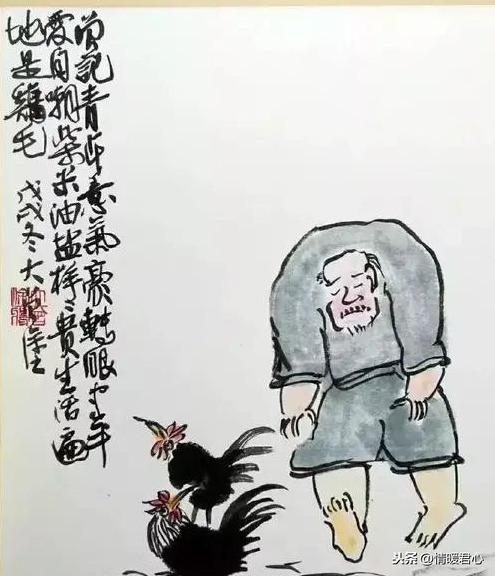 曾記青年意氣豪轉眼中年
愛自嘲柴米油盐樣々貴生活遍
地是雞毛 戊戌冬大
头条@情暖君心